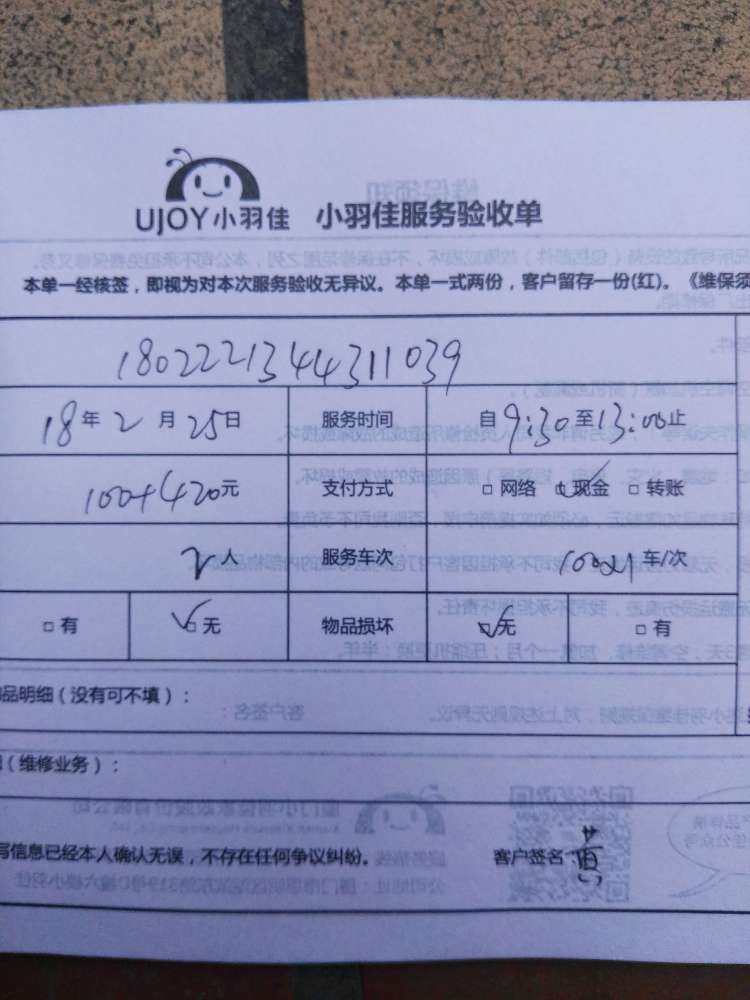 UJOY小羽佳 小羽佳服务验收单
本单一经核签，即视为对本次服务验收无异议。本单一式两份，客户留存一份(红)。《维保须
1802221344311039
18年2月25日 服务时间 自9:30至13:00止
100+420元 支付方式 □网络 ☑现金 □转账
2人 服务车次 车/次
□有 ☑无 物品损坏 ☑无 □有
品明细（没有可不填）：
（维修业务）：
写信息已经本人确认无误，不存在任何争议纠纷。 客户签名：黄